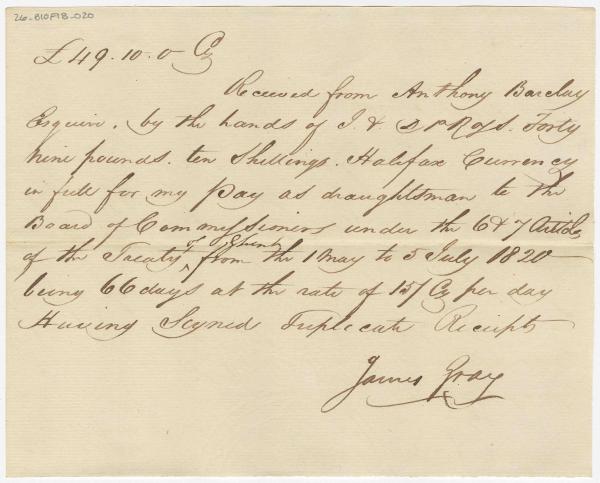 26-B10F1B-020
£49.10.0 Cy
Received from Anthony Barclay
Esquire, by the hands of J. &
Forty
Nine pounds. ten Shillings. Halifax Currency
in full for my Pay as draughtsman to the
Board of Commissioners under the 6 & 7 Article
of the Treaty of Ghent from the 1 May to 5 July 1820
being 66 days at the rate of 15/ Cy per day
Having Signed Triplicate Receipts
James Gray